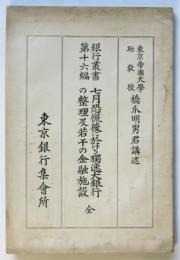 東京帝國大學
助教授 橋爪明男君講述
銀行叢書
第十六編
七月恐慌後に於ける獨逸大銀行
の整理及若干の金融施設 全
東京銀行集會所